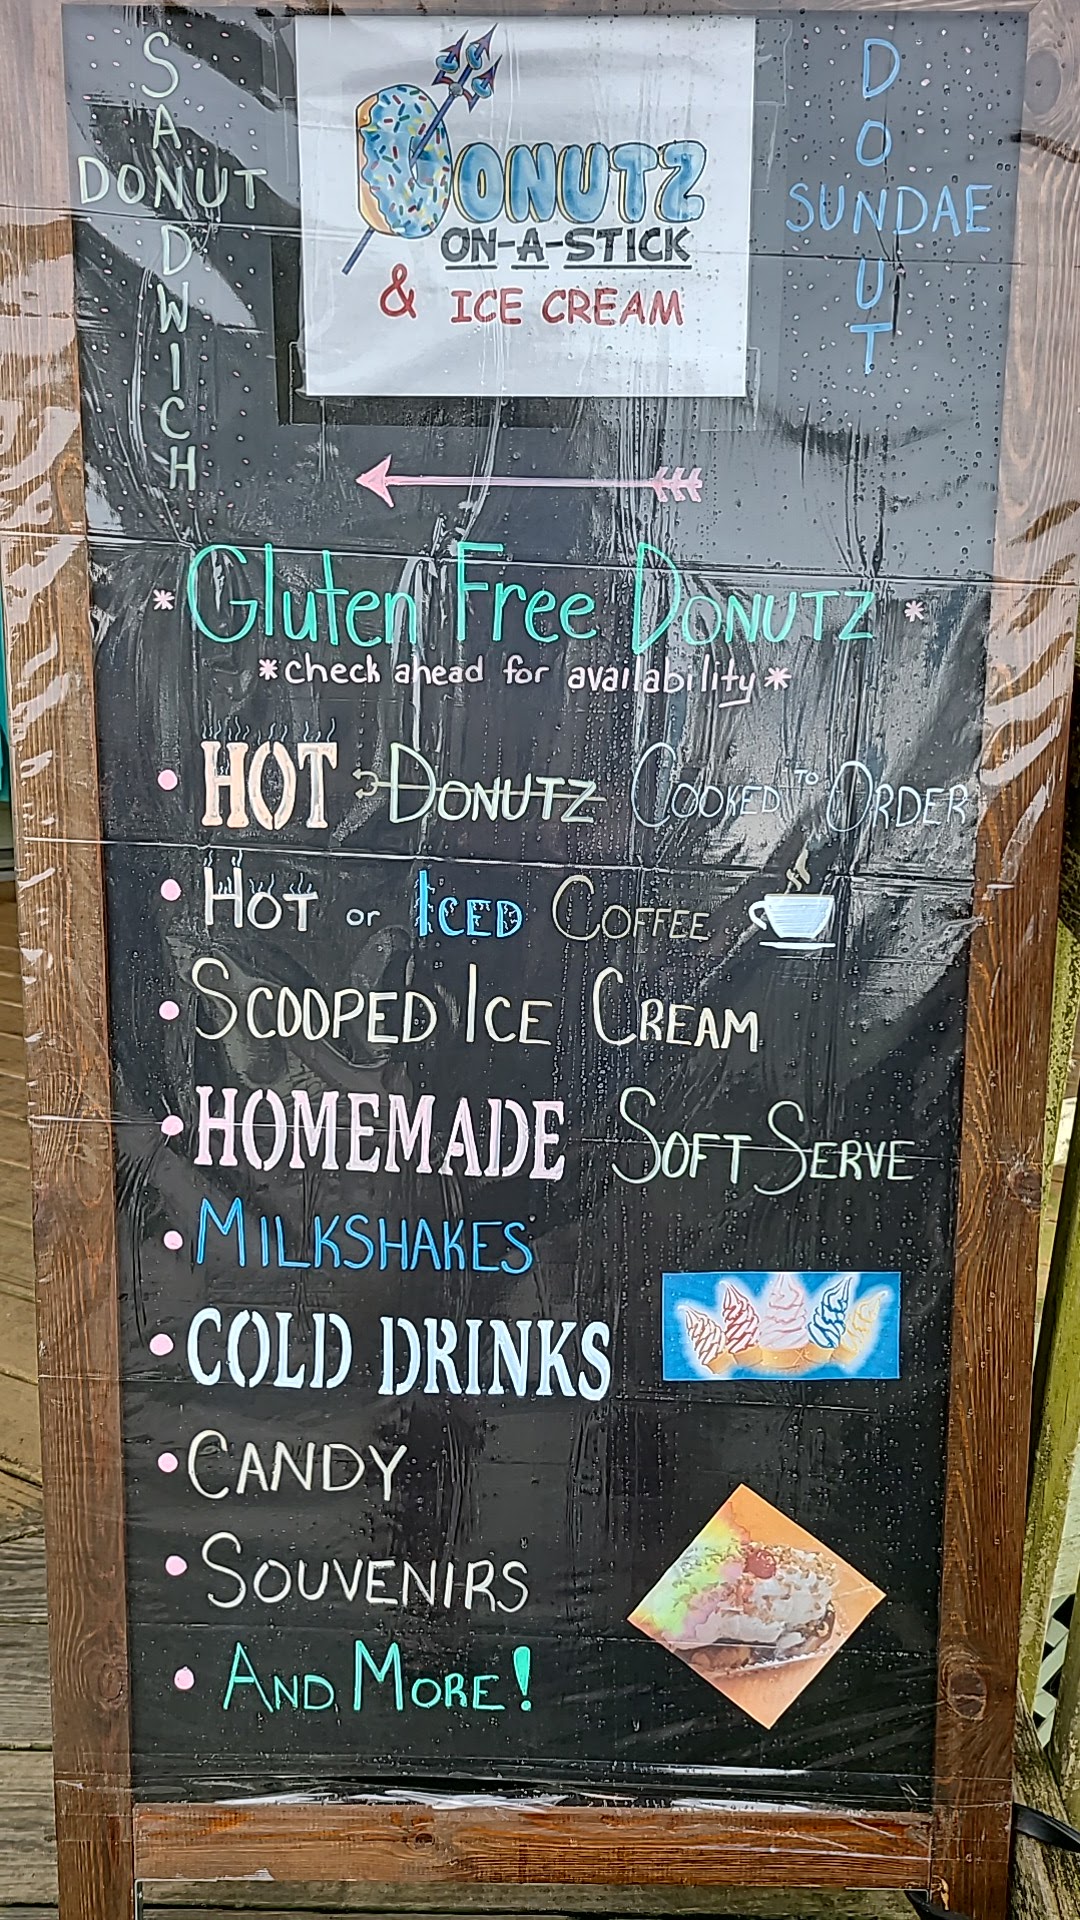 SANDWICH
DONUT
DONUTZ
ON-A-STICK
& ICE CREAM
DONUT
SUNDAE
* Gluten Free DONUTZ *
*check ahead for availability*
• HOT DONUTZ COOKED TO ORDER
• HOT or ICED COFFEE
• SCOOPED ICE CREAM
• HOMEMADE SOFT SERVE
• MILKSHAKES
• COLD DRINKS
• CANDY
• SOUVENIRS
• AND MORE!